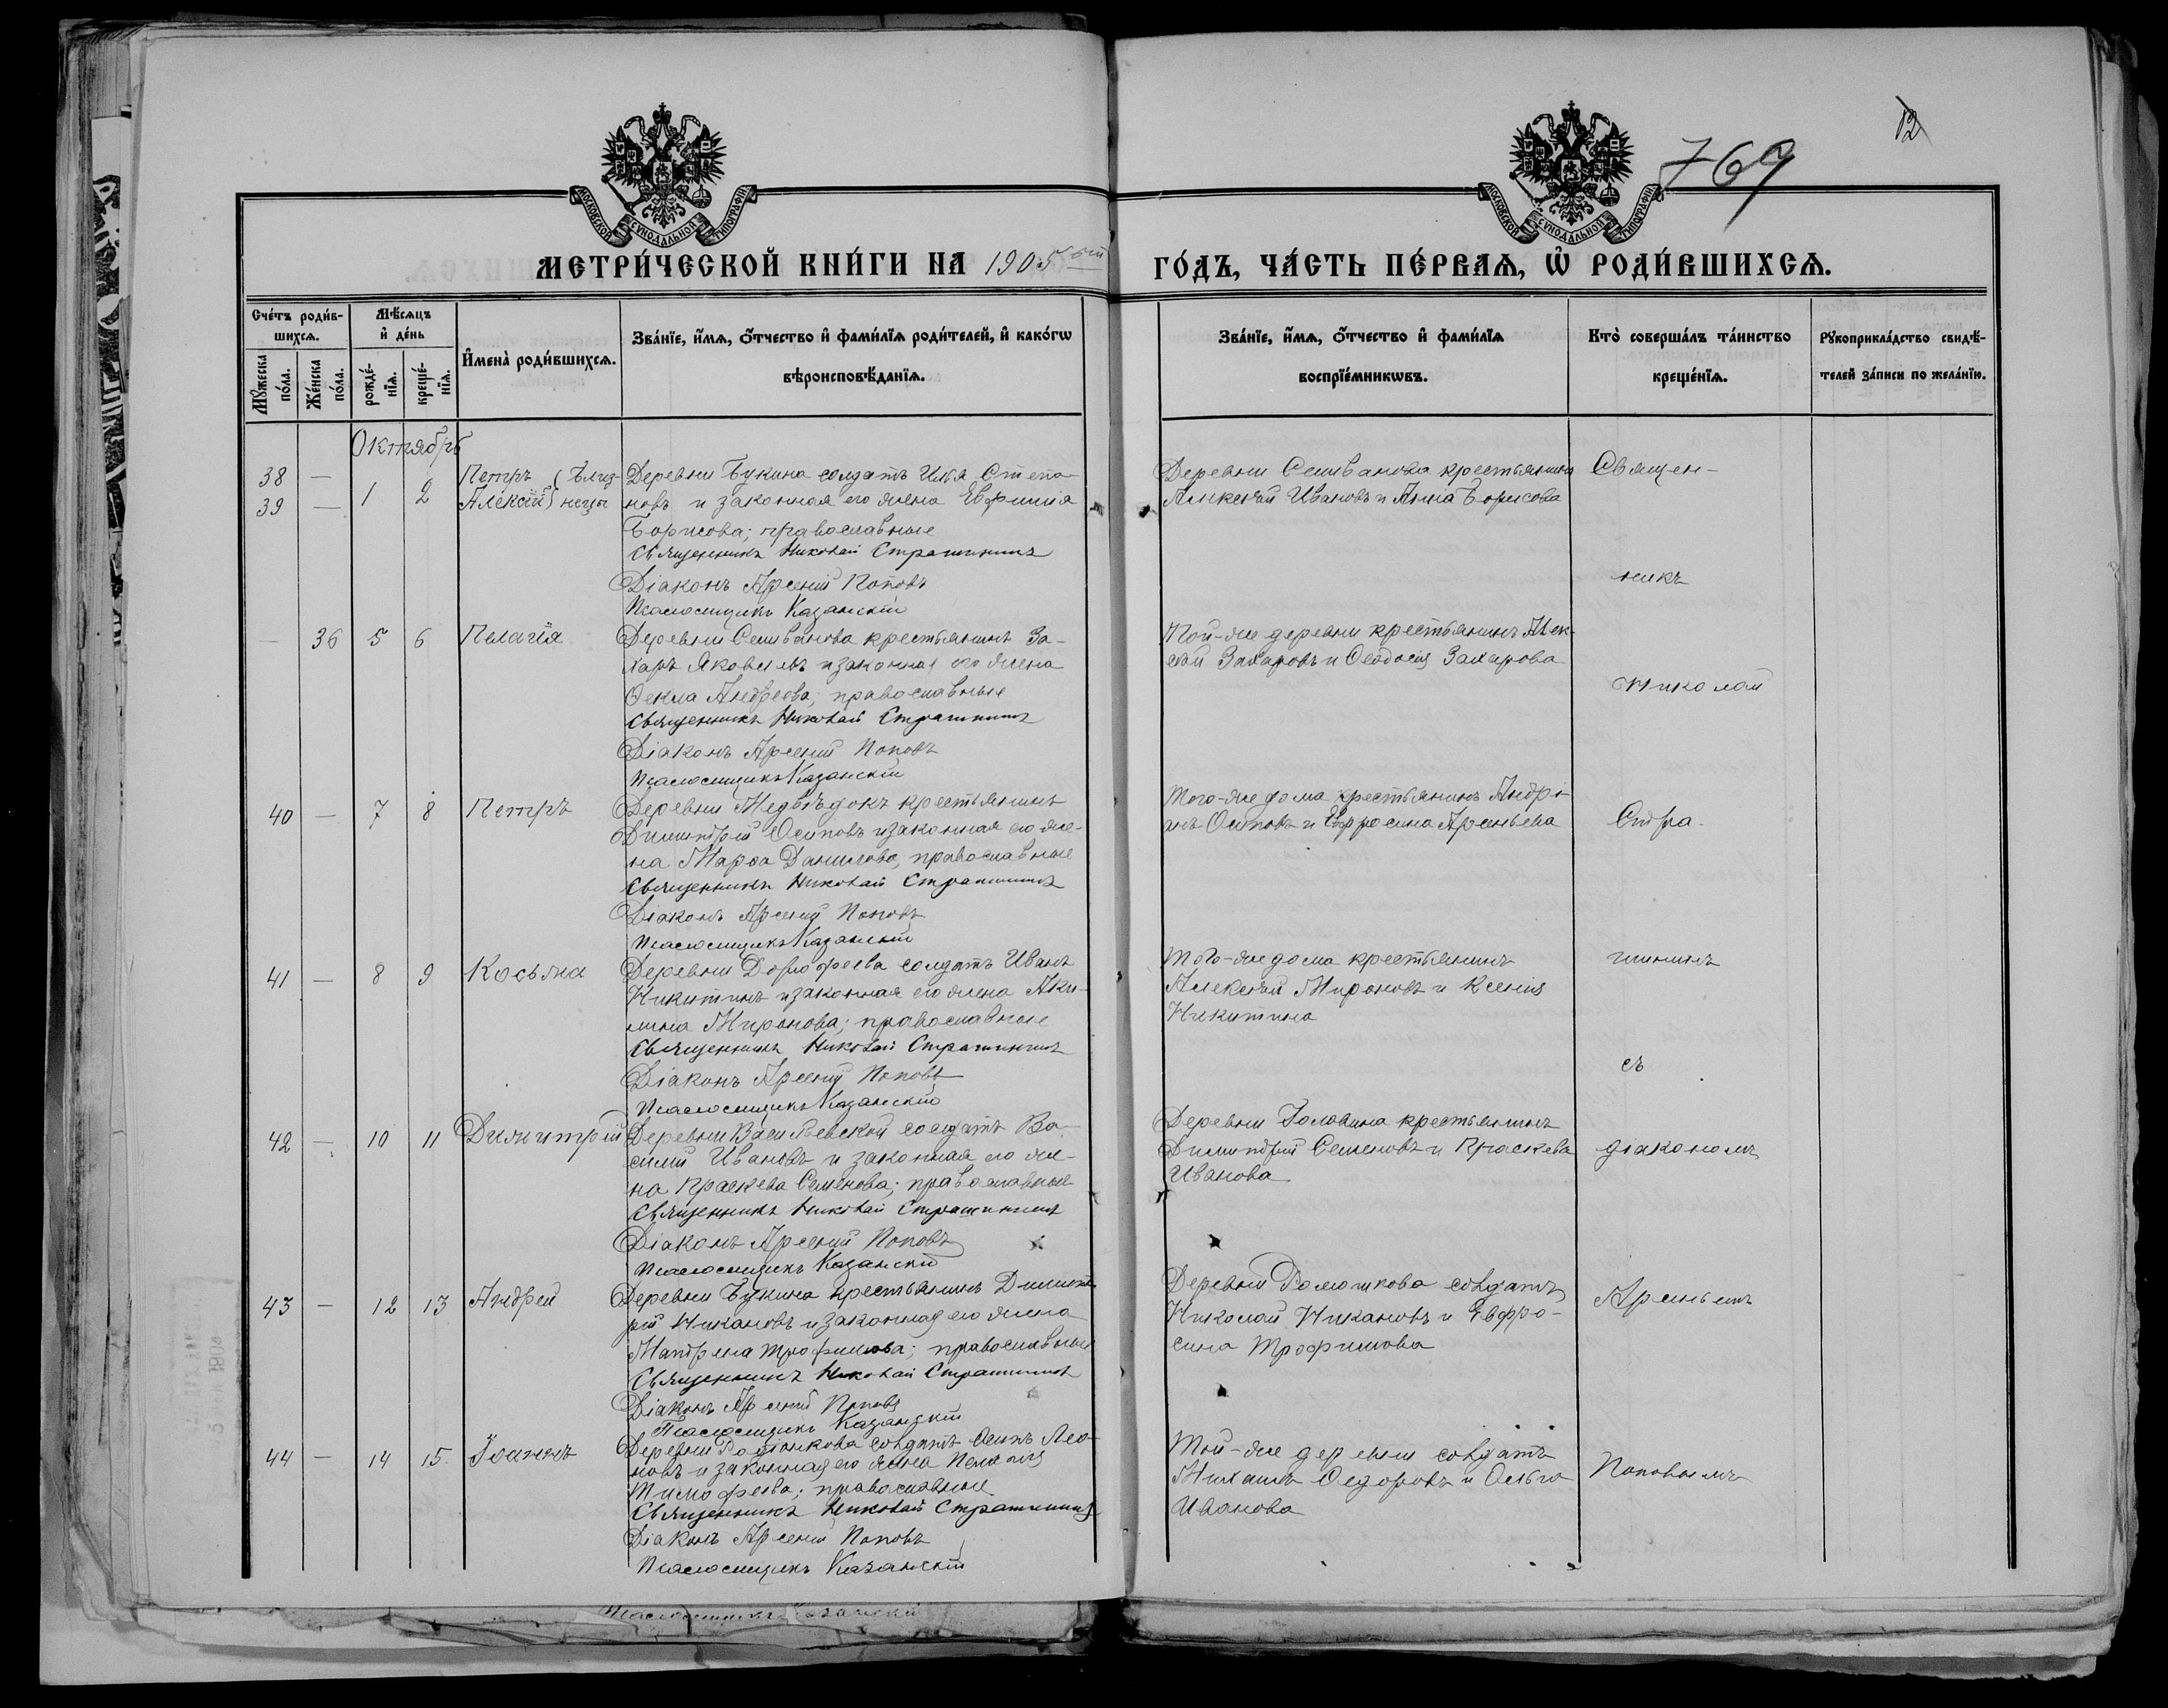 12
769
МОСКОВСКОЙ СѴНОДАЛЬНОЙ ТИПОГРАФІИ
МОСКОВСКОЙ СѴНОДАЛЬНОЙ ТИПОГРАФІИ
МЕТРИ́ЧЕСКОЙ КНИ́ГИ НА 1905 ый
ГО́ДЪ, ЧА́СТЬ ПЕ́РВАѦ, Ѡ҆ РОДИ́ВШИХСѦ.
Сче́тъ роди́в-
шихсѧ.
Мꙋ́жеска по́ла.
Же́нска по́ла.
Мѣ́сѧцъ
и҆ де́нь
рожде́-нїѧ.
креще́-нїѧ.
И҆мена̀ роди́вшихсѧ.
Зва́нїе, и҆́мѧ, ѻ҆́тчество и҆ фами́лїѧ роди́телей, и҆ како́гѡ
вѣроисповѣ́данїѧ.
Зва́нїе, и҆́мѧ, ѻ҆́тчество и҆ фами́лїѧ
воспрїе́мникѡвъ.
Кто̀ соверша́лъ та́инство
креще́нїѧ.
Рꙋкоприкла́дство свидѣ́-
телей за́писи по жела́нїю.
Октябрь
38 — Петръ (близ-
39 — 1 2 Алексій) нецы
Деревни Букина солдатъ Илья Степа-
новъ и законная его жена Евфимія
Борисова; православные
Священникъ Николай Страшнинъ
Діаконъ Арсеній Поповъ
Псаломщикъ Казанскій
Деревни Селиванова крестьянинъ
Алексѣй Ивановъ и Анна Борисова
Священ-
никъ
— 36 5 6 Пелагія
Деревни Селиванова крестьянинъ За-
харъ Яковлевъ и законная его жена
Ѳекла Андреева; православные
Священникъ Николай Страшнинъ
Діаконъ Арсеній Поповъ
Псаломщикъ Казанскій
Той-же деревни крестьянинъ Алек-
сѣй Захаровъ и Ѳеодосія Захарова
Николай
40 — 7 8 Петръ
Деревни Медвѣдокъ крестьянинъ
Димитрій Осиповъ и законная его же-
на Марѳа Данилова, православные
Священникъ Николай Страшнинъ
Діаконъ Арсеній Поповъ
Псаломщикъ Казанскій
Того-же дома крестьянинъ Андре-
Осиповъ и Евфросина Арсеньева
Стра-
41 — 8 9 Косьма
Деревни Дорофеева солдатъ Иванъ
Никитинъ и законная его жена Аки-
лина Миронова; православные
Священникъ Николай Страшнинъ
Діаконъ Арсеній Поповъ
Псаломщикъ Казанскій
Того-же дома крестьянинъ
Алексѣй Мироновъ и Ксенія
Никитина
шнинъ
съ
42 — 10 11 Димитрій
Деревни Васильевской солдатъ Ва-
силій Ивановъ и законная его же-
на Праскева Семенова; православные
Священникъ Николай Страшнинъ
Діаконъ Арсеній Поповъ
Псаломщикъ Казанскій
Деревни Головина крестьянинъ
Димитрій Семеновъ и Праскева
Иванова
діакономъ
43 — 12 13 Андрей
Деревни Букина крестьянинъ Димит-
рій Никановъ и законная его жена
Матрена Трофимова; православные
Священникъ Николай Страшнинъ
Діаконъ Арсеній Поповъ
Псаломщикъ Казанскій
Деревни солдатъ
Николай Никановъ и Евфро-
сина Трофимова
Арсеньемъ
44 — 14 15. Іоаннъ
Деревни солдатъ Осипъ Лео-
новъ и законная его жена Пелагія
Тимофеева; православные
Священникъ Николай Страшнинъ
Діаконъ Арсеній Поповъ
Псаломщикъ Казанскій
Той-же деревни солдатъ
Михаилъ Ѳедоровъ и Ольга
Иванова
Поповымъ